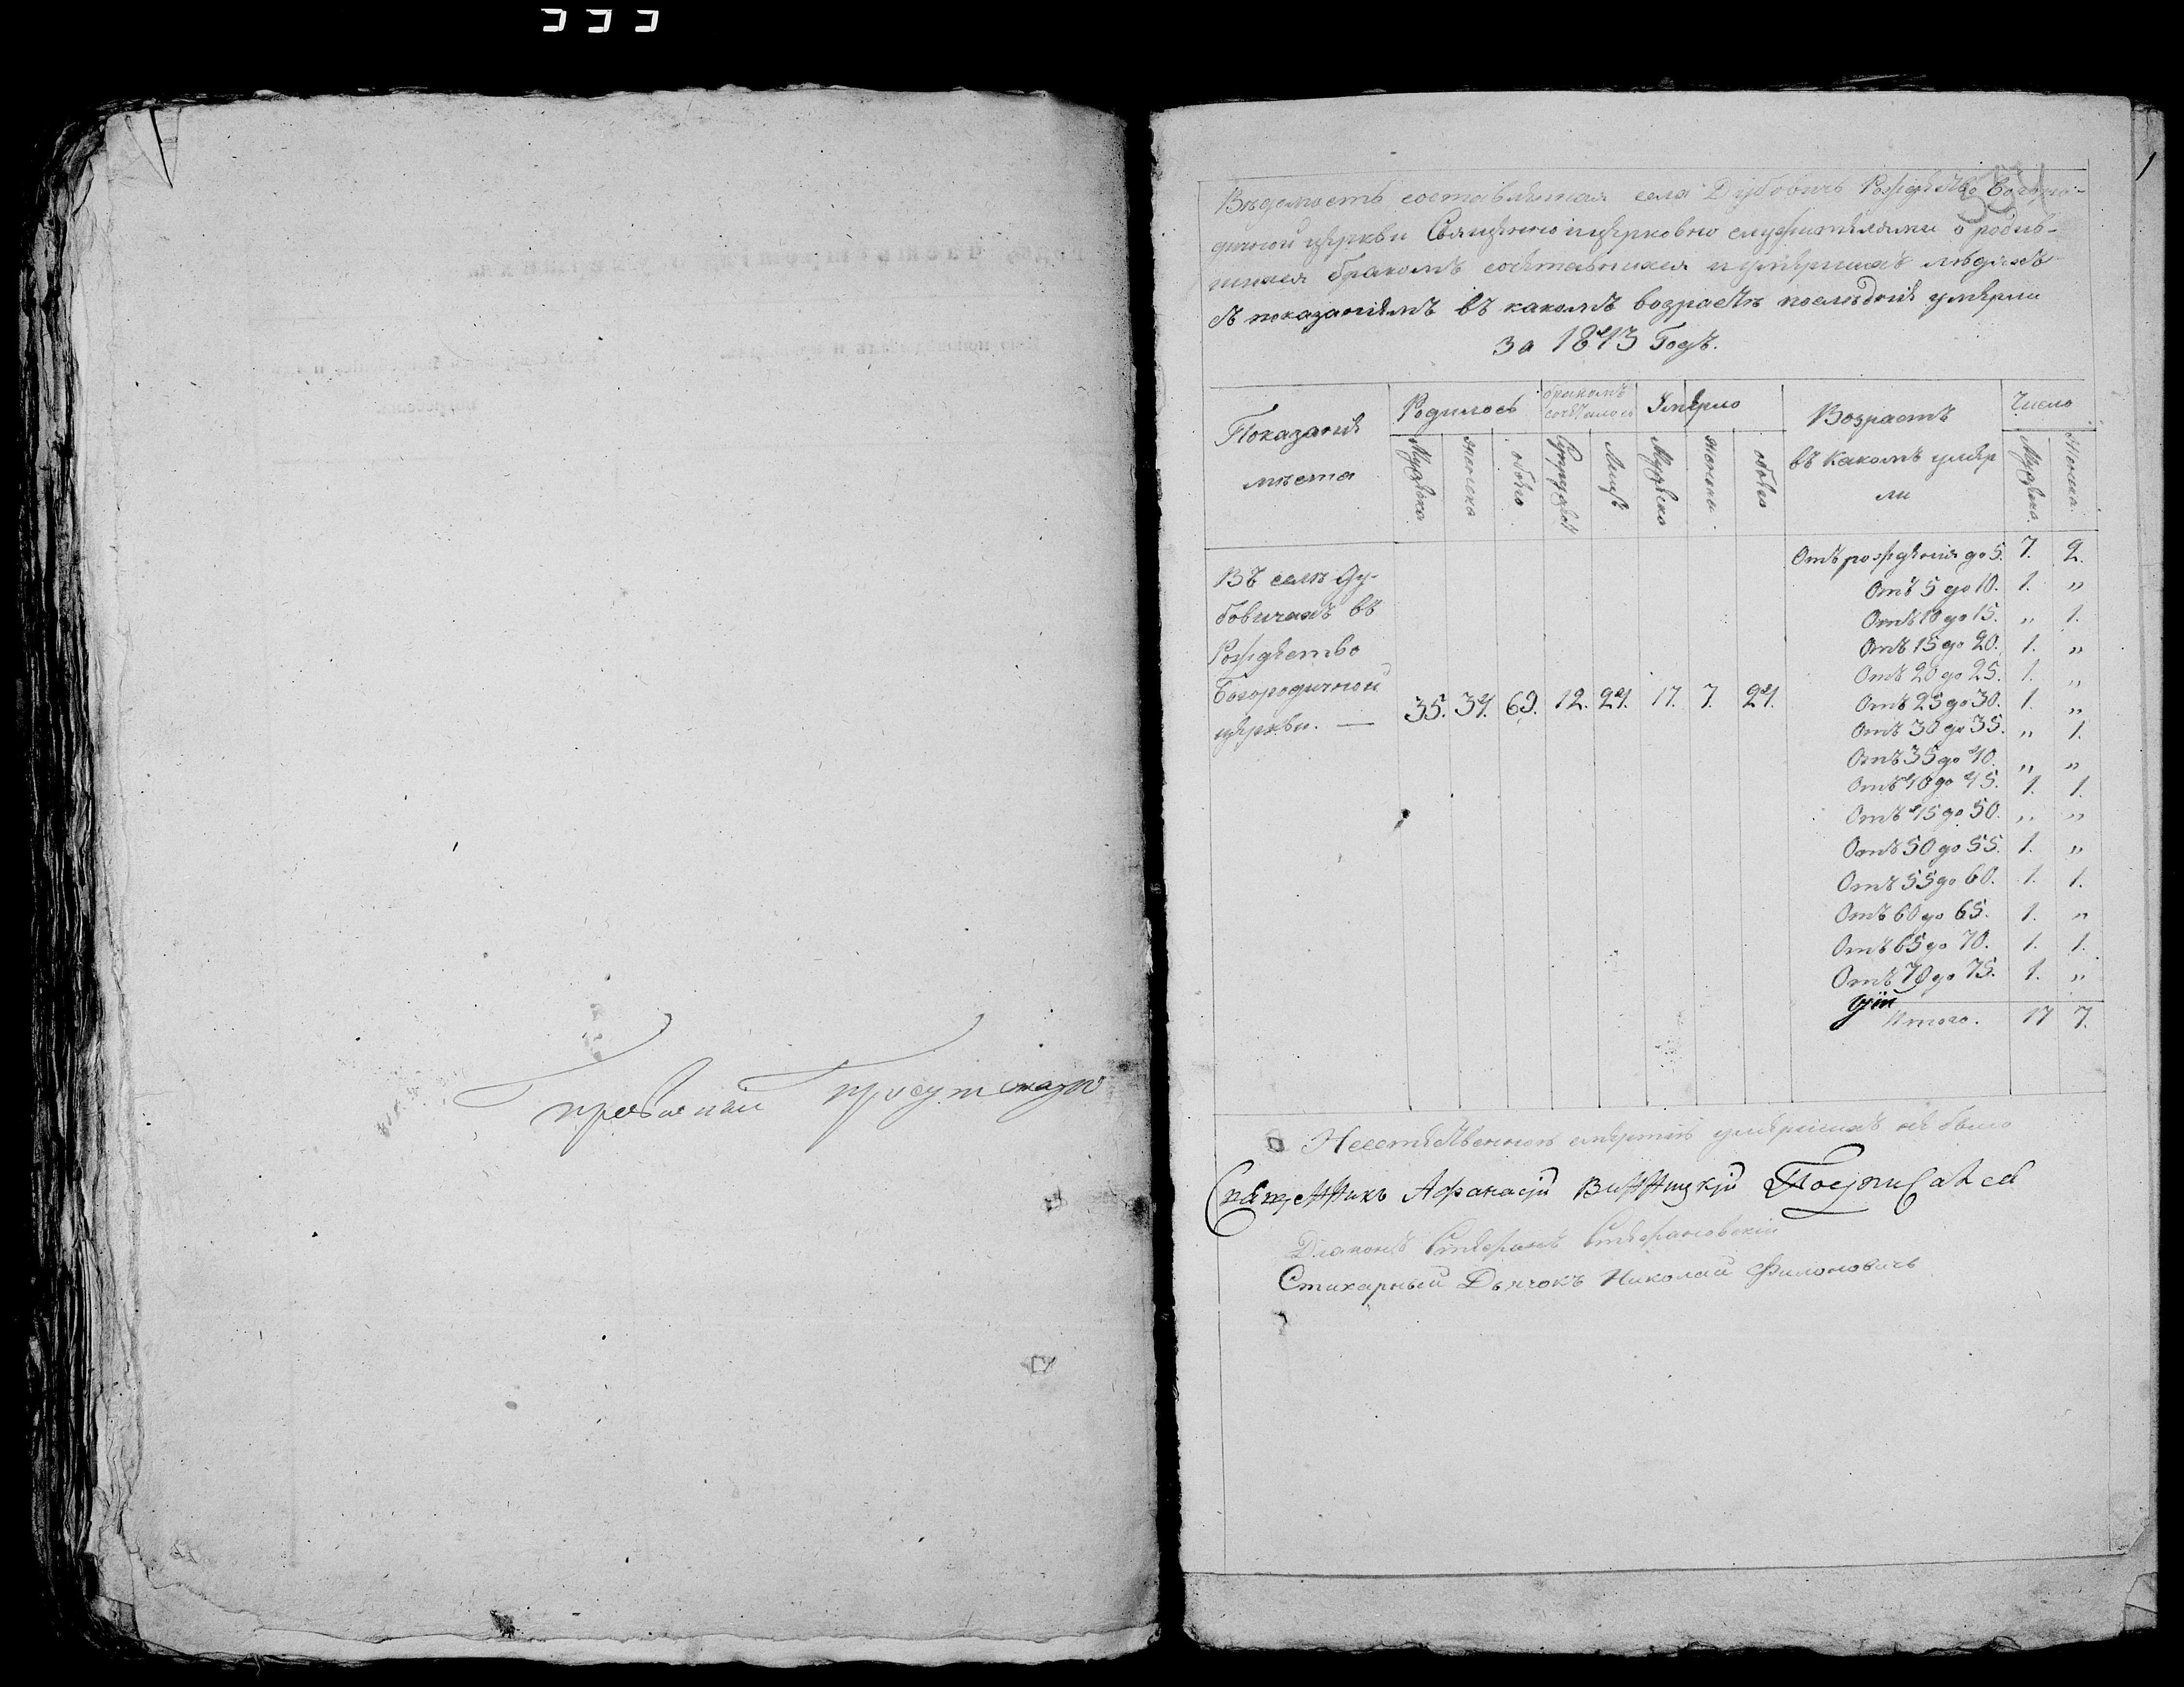 Вѣдомость составленная села Дубовичъ Рождество Богоро-
дичной церкви Священно и церковно служителями о родив-
шихся бракомъ сочетавшихся и умершихъ людяхъ
съ показаніемъ въ какомъ возрастѣ последніе умерли
за 1843 Годъ.
Показаніе мѣста
Родилось
бракомъ сочеталось
Умерло
Возрастъ въ какомъ умер ли
Число
Мужеска
Женска
обоего
Супруговъ
Лицъ
Мужеска
Женска
обоего
Мужеска
Женска
Въ селѣ Ду-
бовичахъ въ
Рождество
Богородичной
церкви. —
35. 34. 69. 12. 24. 17. 7. 24.
Отъ рожденія до 5. 7. 2.
Отъ 5 до 10. 1. „
Отъ 10 до 15. „ 1.
Отъ 15 до 20. 1. „
Отъ 20 до 25. 1. „
Отъ 25 до 30. 1. „
Отъ 30 до 35. „ 1.
Отъ 35 до 40. „ „
Отъ 40 до 45. 1. 1.
Отъ 45 до 50. „ „
Отъ 50 до 55. 1. „
Отъ 55 до 60. 1. 1.
Отъ 60 до 65. 1. „
Отъ 65 до 70. 1. 1.
Отъ 70 до 75. 1. „
Итого. 17 7.
Неестественною смертію умершихъ не было
Священникъ Афанасій Винницкій Подписался
Діаконъ Стефанъ Стефановскій
Стихарный Дьячокъ Николай Филоновичь